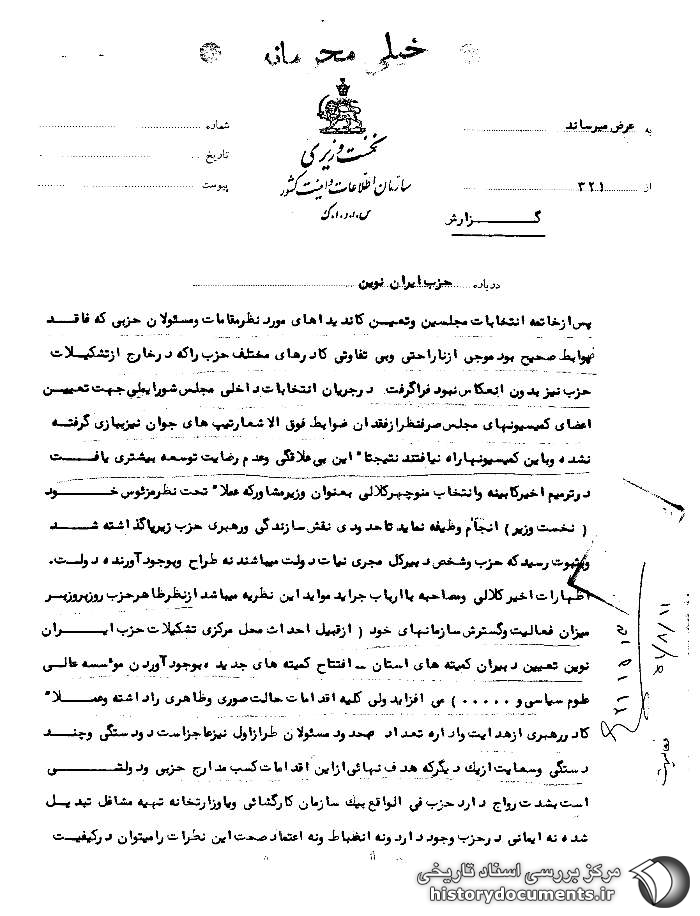 خیلی محرمانه
به عرض میرساند
شماره
نخست وزیری
تاریخ
سازمان اطلاعات و امنیت کشور
از ۳۲۱
پیوست
س.ا.و.ا.ک
گزارش
درباره حزب ایران نوین
پس از خاتمه انتخابات مجلسین وتعیین کاندیداهای مورد نظرمقامات ومسئولان حزبی که فاقد
ضوابط صحیح بود موجی ازناراحتی وبی تفاوتی کادرهای مختلف حزب راکه درخارج ازتشکیلات
حزب نیز بدون انعکاس نبود فراگرفت درجریان انتخابات داخلی مجلس شورایملی جهت تعیین
اعضای کمیسیونهای مجلس صرفنظرازفقدان ضوابط فوق الاشعارتیپ های جوان نیزببازی گرفته
نشده وباین کمیسیونهاراه نیافتند نتیجتا" این بی علاقگی وعدم رضایت توسعه بیشتری یافت
درترمیم اخیرکابینه وانتخاب منوچهرکلالی بعنوان وزیرمشاورکه عملا" تحت نظرمرئوس خود
( نخست وزیر ) انجام وظیفه نماید تاحدودی نقش سازندگی ورهبری حزب زیرپاگذاشته شد
وبثبوت رسیدکه حزب وشخص دبیرکل مجری نیات دولت میباشند نه طراح وبوجودآورنده دولت.
اظهارات اخیرکلالی ومصاحبه باارباب جراید موایداین نظریه میباشد ازنظرظاهرحزب روزبروزبر
میزان فعالیت وگسترش سازمانهای خود ( ازقبیل احداث محل مرکزی تشکیلات حزب ایران
نوین تعیین دبیران کمیته های استان ــ افتتاح کمیته های جدید ،بوجودآوردن موسسه عالی
علوم سیاسی و ۰۰۰۰۰ ) می افزاید ولی کلیه اقدامات حالت صوری وظاهری راداشته وعملا"
کادررهبری ازهدایت واداره تعداد محدود مسئولان طرازاول نیزعاجزاست دودستگی وچند
دستگی وسعایت ازیک دیگرکه هدف نهائی ازاین اقدامات کسب مدارج حزبی ودولتی
است بشدت رواج دارد حزب فی الواقع بیک سازمان کارگشائی ویاوزارتخانه تهیه مشاغل تبدیل
شده نه ایمانی درحزب وجود دارد ونه انضباط ونه اعتماد صحت این نظرات رامیتوان درکیفیت
مرکز بررسی اسناد تاریخی
historydocuments.ir